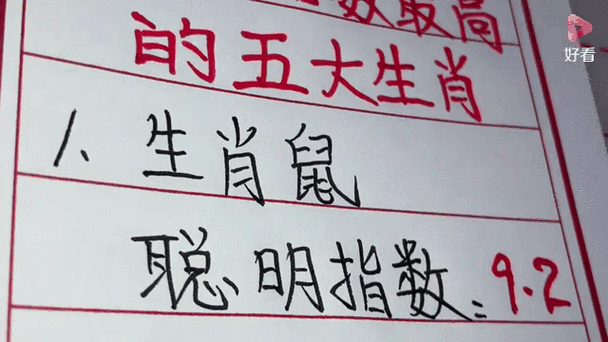 数最高
的五大生肖
1、生肖鼠
聪明指数:9.2
好看